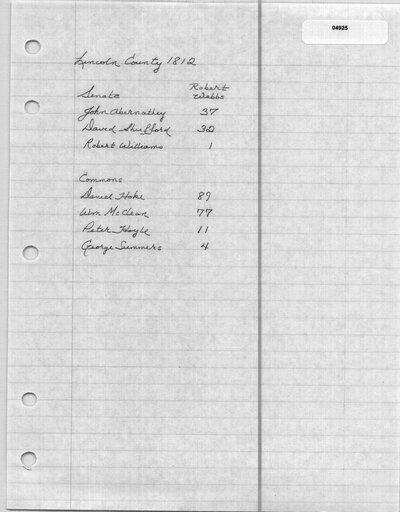 04925
Lincoln County 1812
Robert
Senate Webbs
John Abernathey 37
David Shufford 32
Robert Williams 1
Commons
Daniel Hoke 89
Wm McClean 77
Peter Hoyle 11
George Summers 4